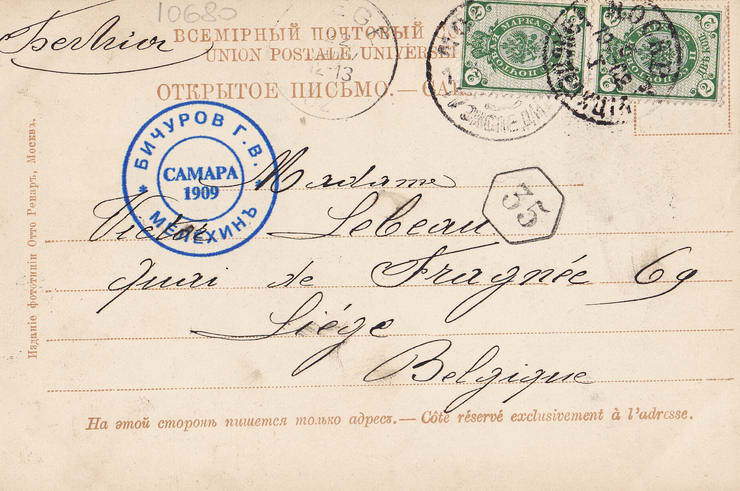 10680
ВСЕМІРНЫЙ ПОЧТОВЫЙ
UNION POSTALE UNIVERSE
ОТКРЫТОЕ ПИСЬМО.—CA
2 МАРКА 2
2 2
БИЧУРОВ Г. В.
САМАРА
1909
МЕЛЕХИНЪ
35
Madame
Victor Lebeau
Quai de Fragnée 69
Liége
Belgique
Изданіе фототипіи Отто Ренаръ, Москвъ.
На этой сторонѣ пишется только адресъ.—Côté réservé exclusivement à l'adresse.